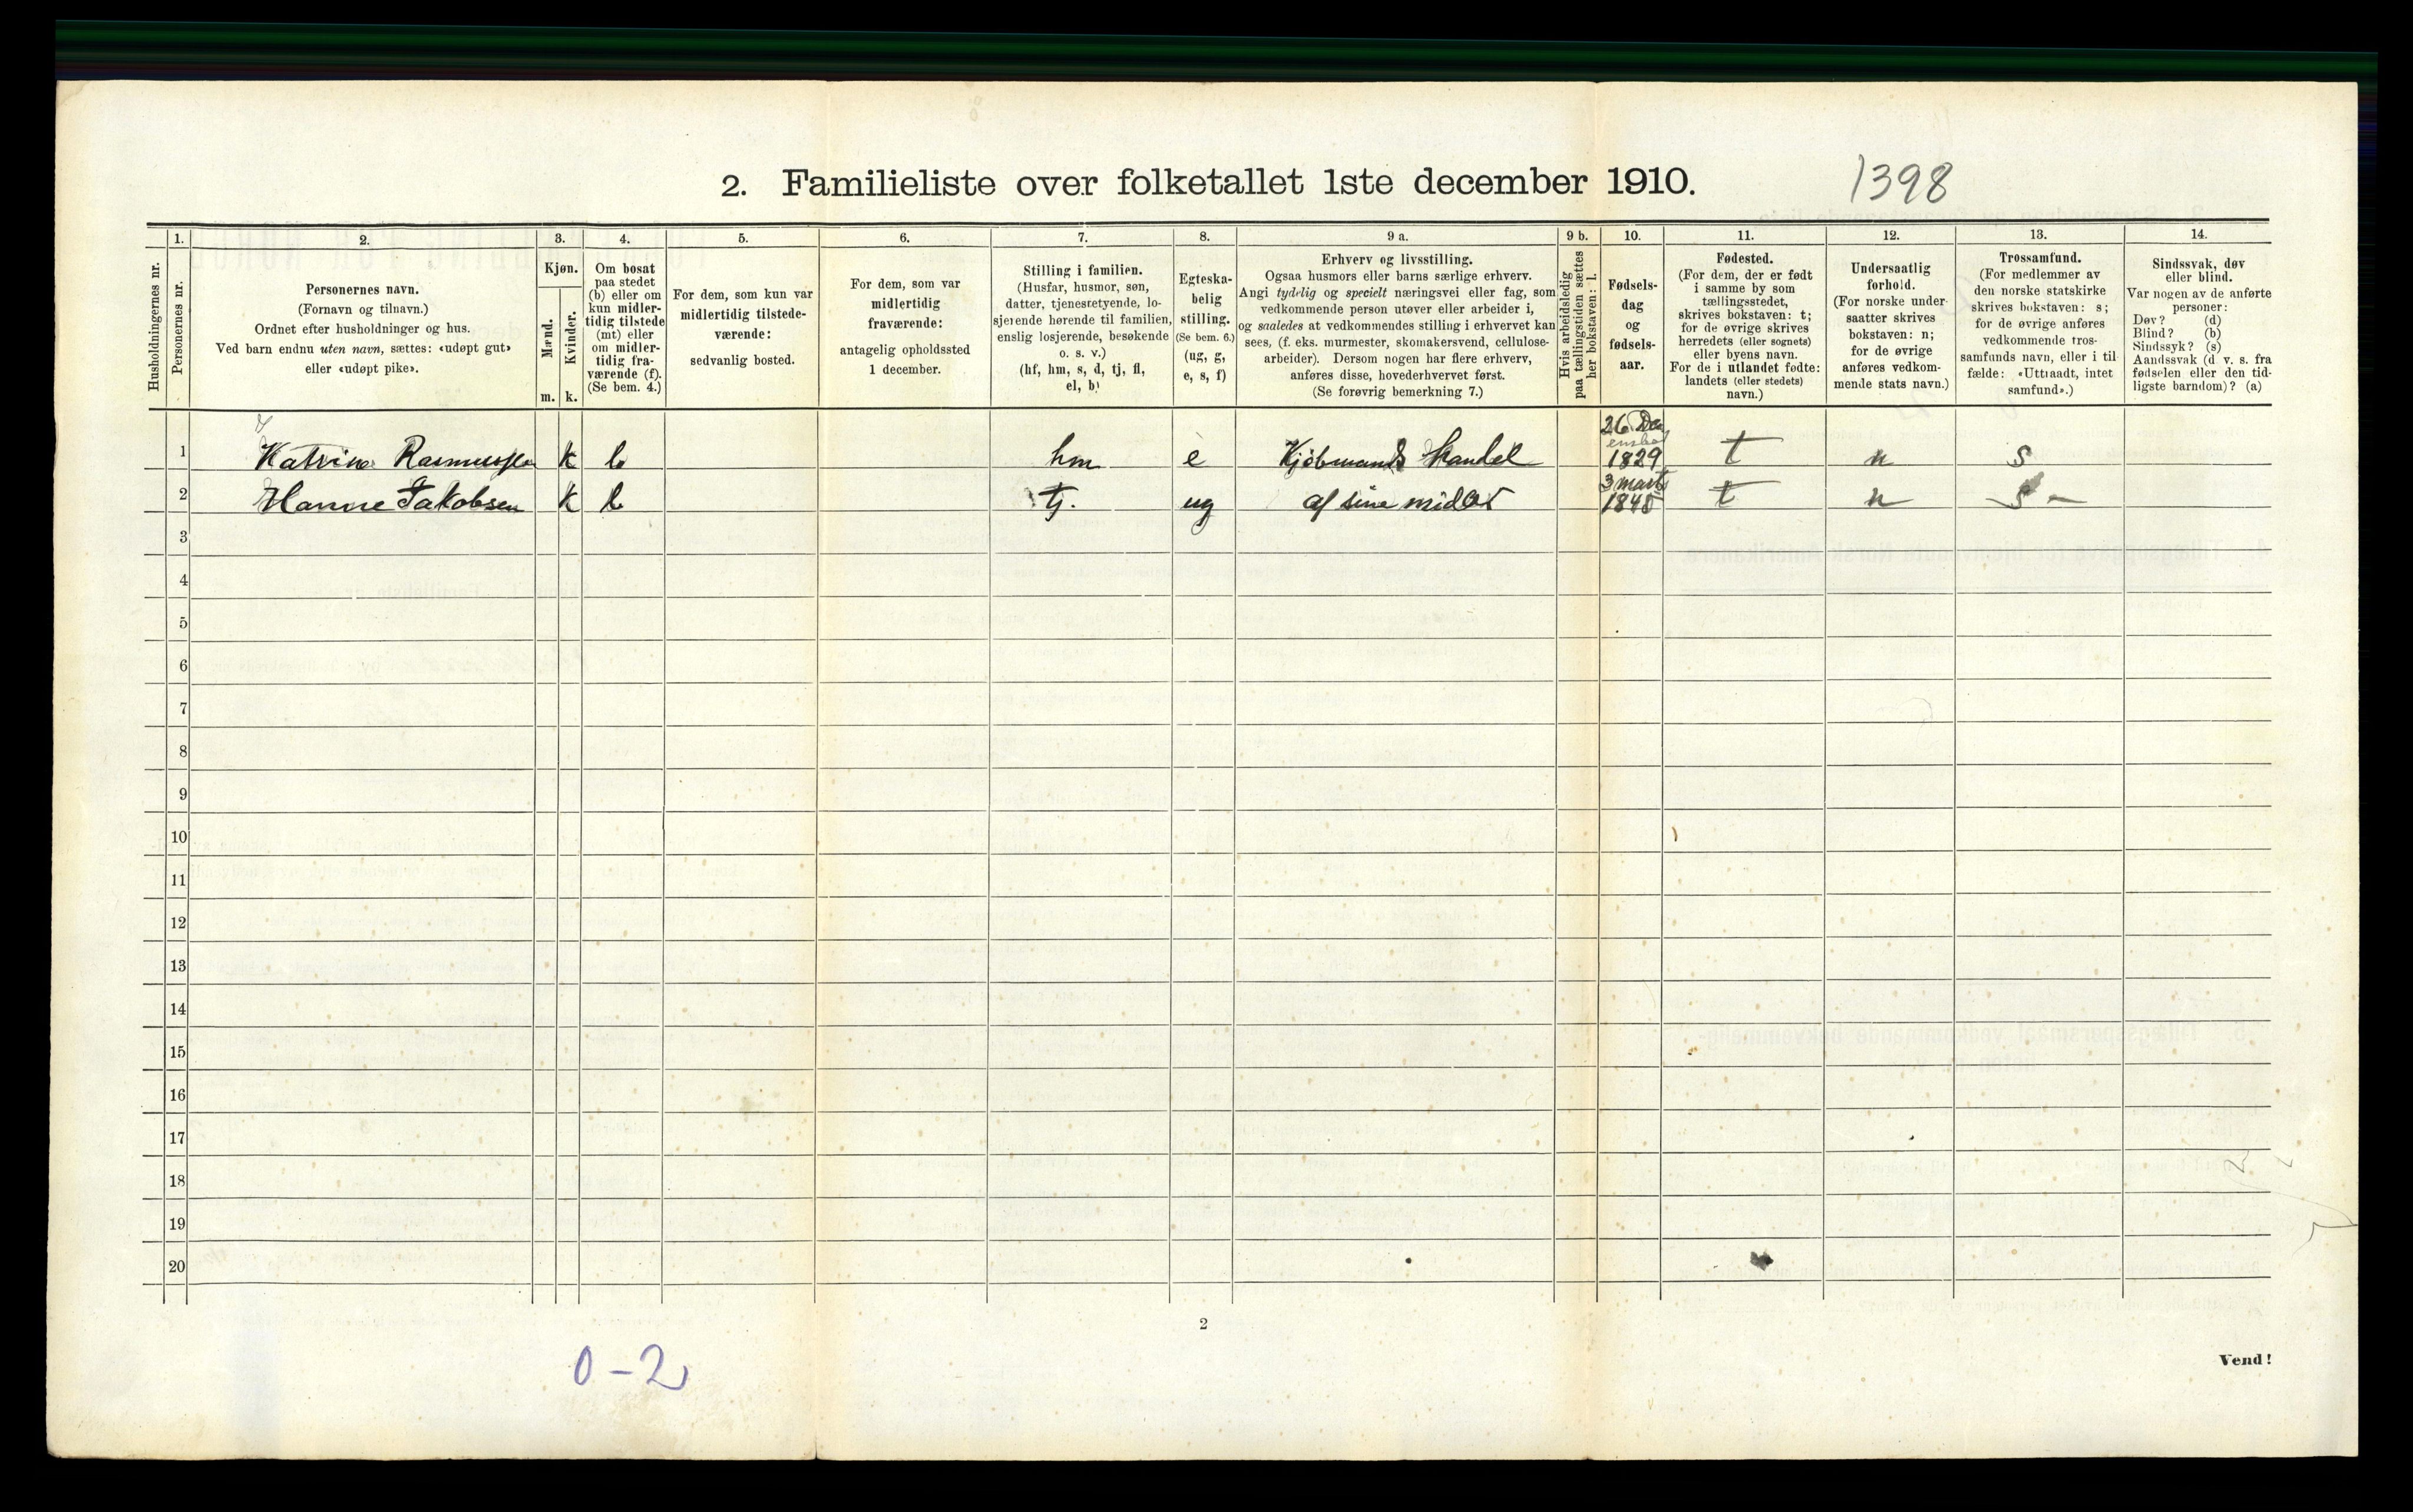 2. Familieliste over folketallet 1ste december 1910.
1398
Husholdningernes nr.
1.
Personernes nr.
2.
Personernes navn.
(Fornavn og tilnavn.)
Ordnet efter husholdninger og hus.
Ved barn endnu uten navn, sættes: «udøpt gut»
eller «udøpt pike».
3.
Kjøn.
Mænd.
Kvinder.
m. k.
4.
Om bosat
paa stedet
(b) eller om
kun midler-
tidig tilstede
(mt) eller
om midler-
tidig fra-
værende (f).
(Se bem. 4.)
5.
For dem, som kun var
midlertidig tilstede-
værende:
sedvanlig bosted.
6.
For dem, som var
midlertidig
fraværende:
antagelig opholdssted
1 december.
7.
Stilling i familien.
(Husfar, husmor, søn,
datter, tjenestetyende, lo-
sjerende hørende til familien,
enslig losjerende, besøkende
o. s. v.)
(hf, hm, s, d, tj, fl,
el, b)
8.
Egteska-
belig
stilling.
(Se bem. 6.)
(ug, g,
e, s, f)
9 a.
Erhverv og livsstilling.
Ogsaa husmors eller barns særlige erhverv.
Angi tydelig og specielt næringsvei eller fag, som
vedkommende person utøver eller arbeider i,
og saaledes at vedkommendes stilling i erhvervet kan
sees, (f. eks. murmester, skomakersvend, cellulose-
arbeider). Dersom nogen har flere erhverv,
anføres disse, hovederhvervet først.
(Se forøvrig bemerkning 7.)
9 b.
Hvis arbeidsledig
paa tællingstiden sættes
her bokstaven: l.
10.
Fødsels-
dag
og
fødsels-
aar.
11.
Fødested.
(For dem, der er født
i samme by som
tællingsstedet,
skrives bokstaven: t;
for de øvrige skrives
herredets (eller sognets)
eller byens navn.
For de i utlandet fødte:
landets (eller stedets)
navn.)
12.
Undersaatlig
forhold.
(For norske under-
saatter skrives
bokstaven: n;
for de øvrige
anføres vedkom-
mende stats navn.)
13.
Trossamfund.
(For medlemmer av
den norske statskirke
skrives bokstaven: s;
for de øvrige anføres
vedkommende tros-
samfunds navn, eller i til-
fælde: «Uttraadt, intet
samfund».)
14.
Sindssvak, døv
eller blind.
Var nogen av de anførte
personer:
Døv? (d)
Blind? (b)
Sindssyk? (s)
Aandssvak (d. v. s. fra
fødselen eller den tid-
ligste barndom)? (a)
1 Katrine Rasmussen k b hm e Kjöbmands handel 26 De 1829 t n s
2 Hanne Jakobsen k b tj. ug af sine midler 3 marts 1845 t n s
3
4
5
6
7
8
9
10
11
12
13
14
15
16
17
18
19
20
2
0-2
Vend!